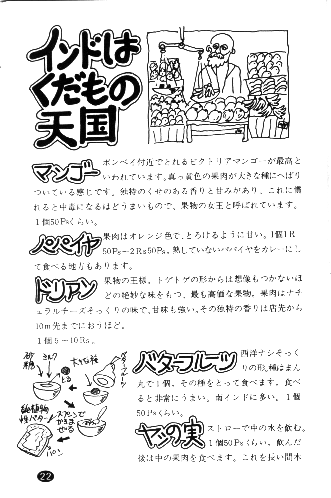 インドは
くだもの
天国
マンゴー
ボンベイ付近でとれるビクトリアマンゴーが最高と
いわれています。真っ黄色の果肉が大きな種にへばり
ついている感じです。独特のくせのある香りと甘みがあり、これに慣
れると中毒になるほどうまいもので、果物の女王と呼ばれています。
1個50Psくらい。
パパイヤ
果肉はオレンジ色で、とろけるように甘い。1個1R
50Ps−2Rs50Ps。熟していないパパイヤをカレーにし
て食べる地方もあります。
ドリアン
果物の王様。トゲトゲの形からは想像もつかないほ
どの絶妙な味をもつ、最も高価な果物。果肉はナチ
ュラルチーズそっくりの味で、甘味も強い。その独特の香りは店先から
10m先までにおうほど。
1個5〜10Rs。
砂糖
ミルク
大きな種
バターフルーツ
スプーンで
かきま
ぜる
純植物
性バター!
パン
バターフルーツ
西洋ナシそっく
りの形。種はまん
丸で1個。その種をとって食べます。食べ
ると非常にうまい。南インドに多い。1個
50Psくらい。
ヤシの実
ストローで中の水を飲む。
1個50Psくらい。飲んだ
後は中の果肉を食べます。これを長い間木
22